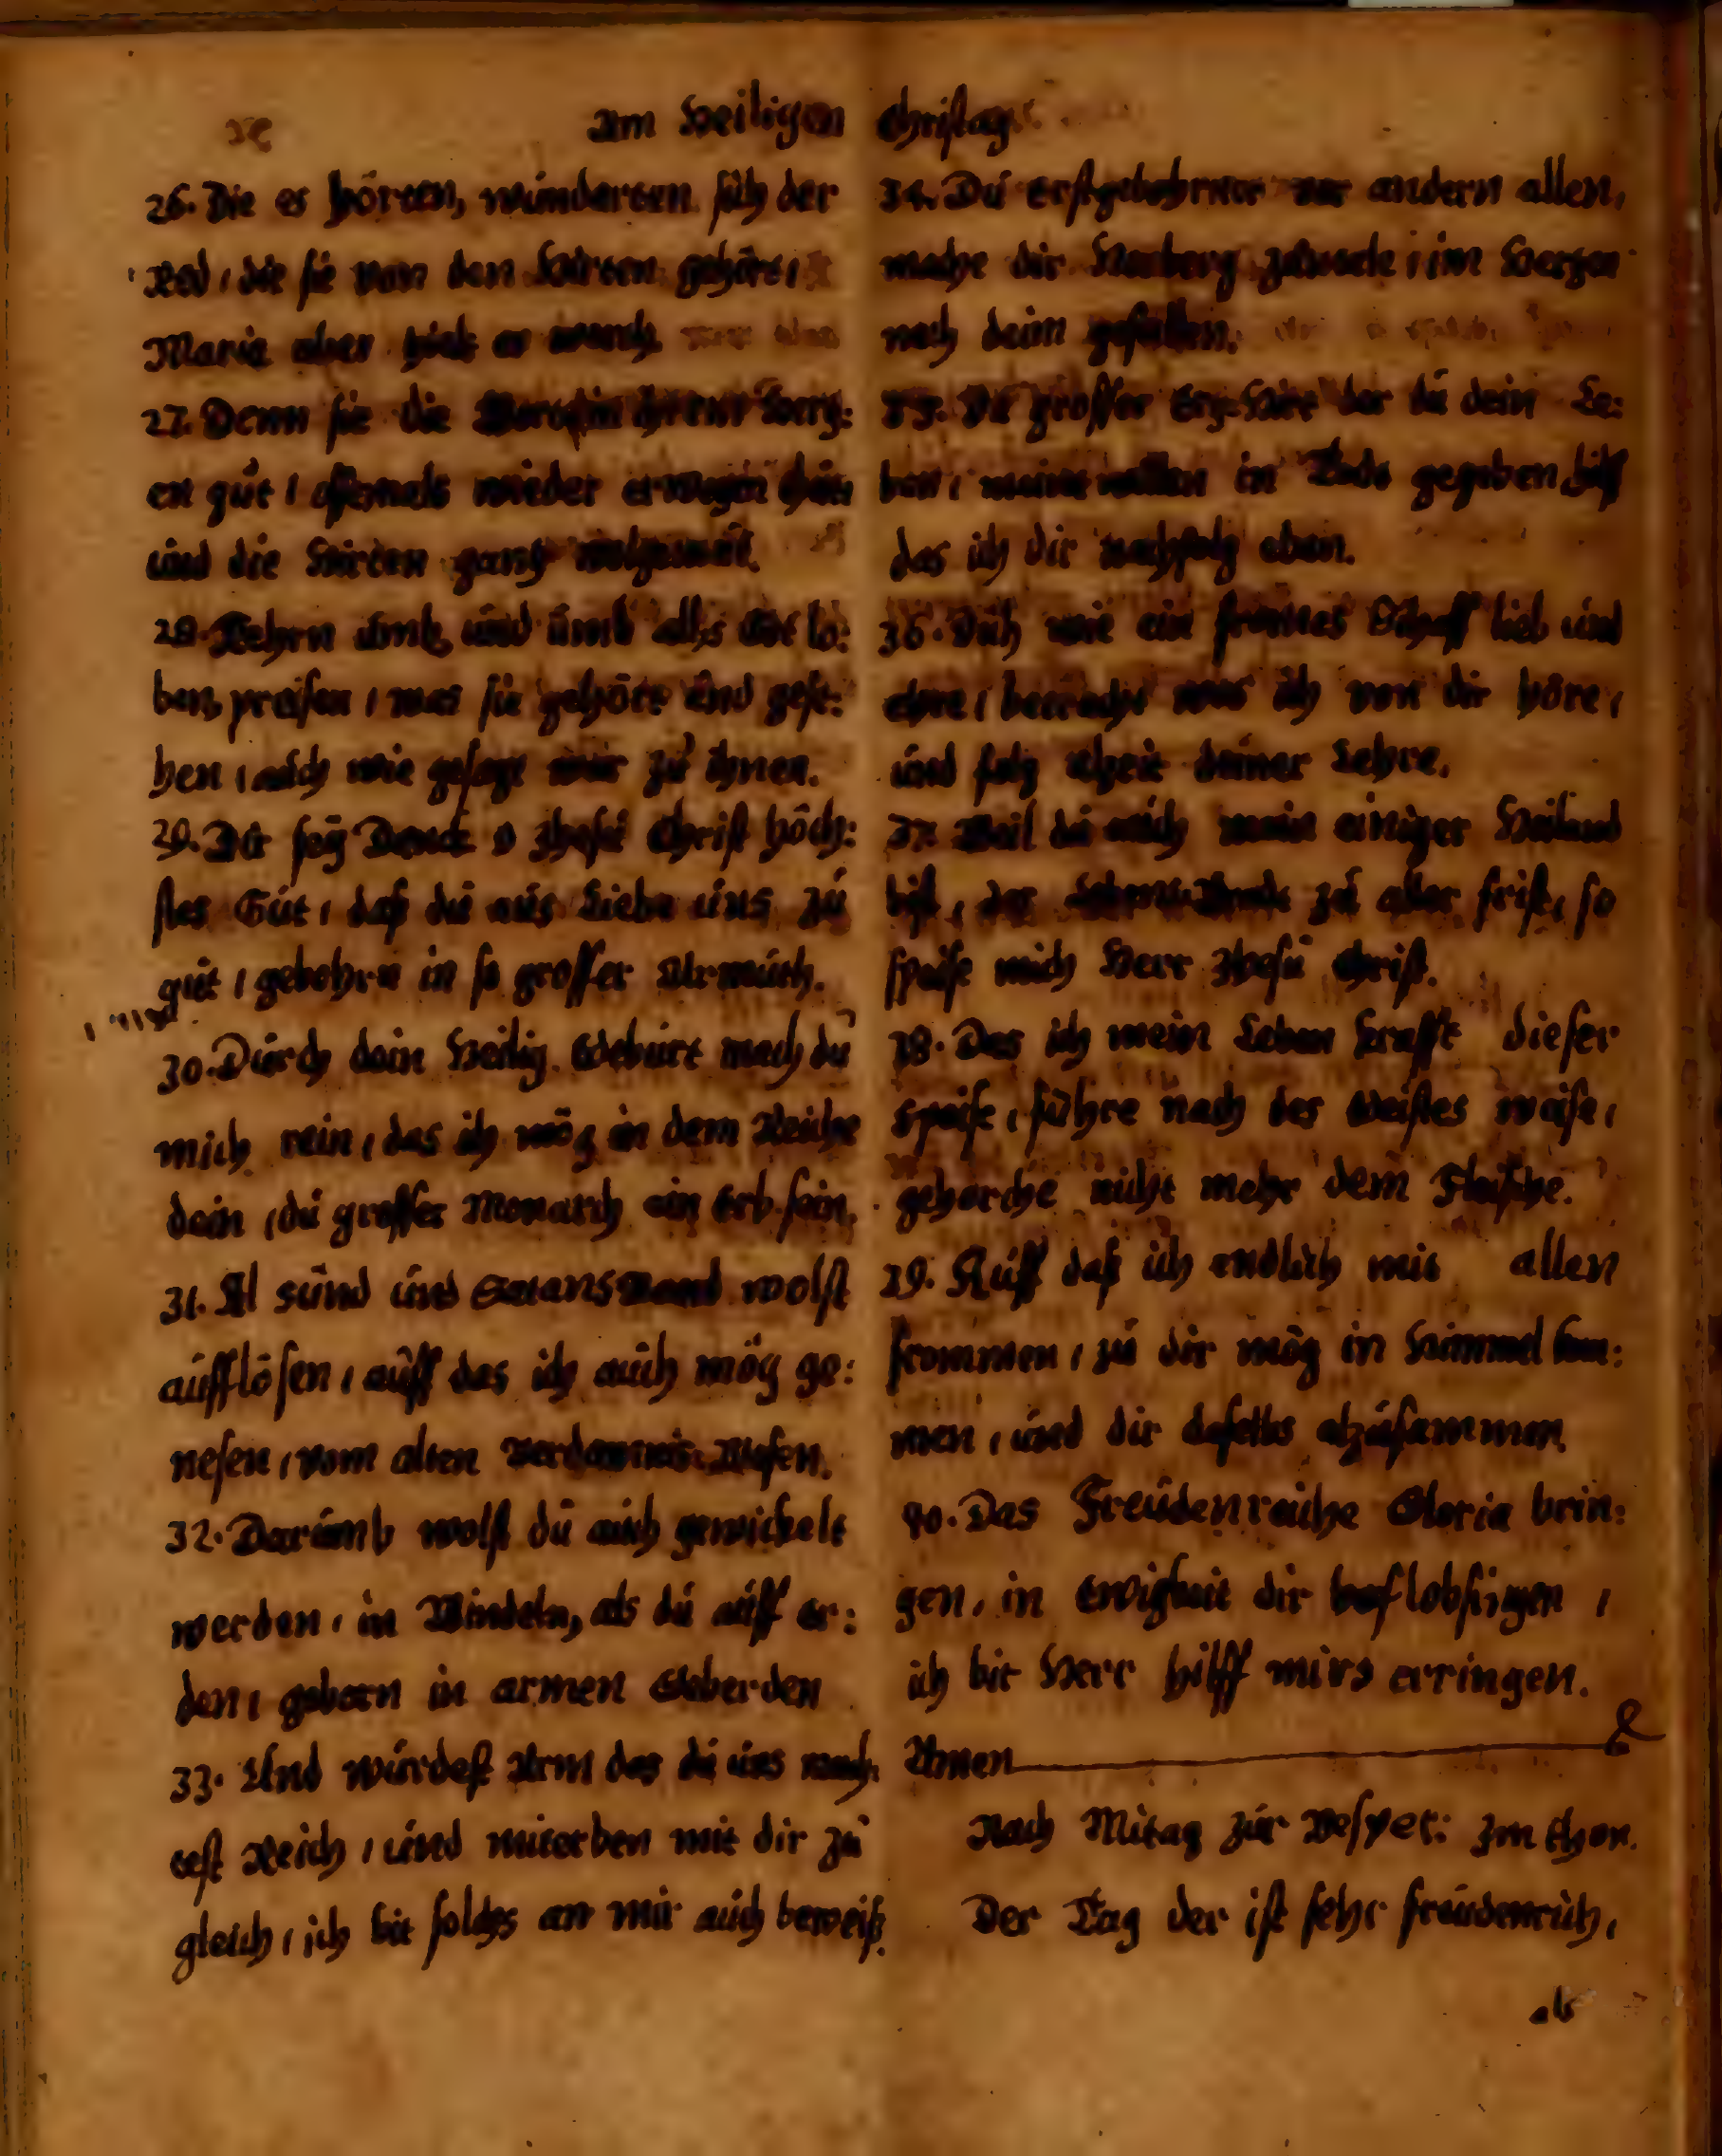 Am Heiligen Christag
26. Die es höreten, wunderten sich der
Red, die sie von den Hirten gehört,
Maria aber hielt es werth.
27. Denn sie die Wort in ihrem Hertz:
en gut, offtmals wieder erwegen thut
und die Hirten gantz wolgemut.
28. Kehrn umb, und umb alls Got lo:
ben, preisen, was sie gehört und gese:
hen, auch wie gesagt war zu ihnen.
29. Dir sey Danck o Jhesu Christ höch:
stes Gut, daß du aus Liebe uns zu
gut, gebohrn in so grosser Armuth.
30. Durch dein Heilig Geburt mach du
mich rein, das ich mög in dem Reiche
dein, du grosser Monarch ein Erb sein.
31. Al sünd und Satans Band wolst
aufflösen, auff das ich auch mög ge:
nesen, vom alten Verdamnis Wesen.
32. Darumb wolst du auch gewickelt
werden, in Windeln, als du auff er:
den, geborn in armen Geberden
33. Und wurdest Arm das du uns mach:
test Reich, und miterben mit dir zu
gleich, ich bit solchs an mir auch beweiß.
34. Du erstgebohrner vor andern allen,
mache dir Herberg im Hertzen
nach deim gefallen.
35. Du grosser Ertz-Hirt der du dein Le:
ben, meint willen in Tode gegeben hilff
das ich dir nachfolg eben.
36. Dich wie ein frommes Schaff lieb und
ehre, betracht was ich von dir höre,
und folg alzeit deiner Lehre.
37. Weil du auch mein einiger Heiland
bist, das Lebens-Brodt zu aller frist, so
speise mich Herr Jhesu Christ.
38. Das ich mein Leben krafft dieser
Speise, führe nach des Geistes weise,
gehorche nicht mehr dem Fleische.
39. Auff daß ich endlich mit allen
frommen, zu dir mög in Himmel kom:
men, und dir daselbs alzusammen
40. Das Freudenreiche Gloria brin:
gen, in Ewigkeit dir lobsingen,
ich bit Herr hilff mirs erringen.
Amen
Nach Mitag zur Vesper: Im thon.
Der Tag der ist sehr freudenrich,